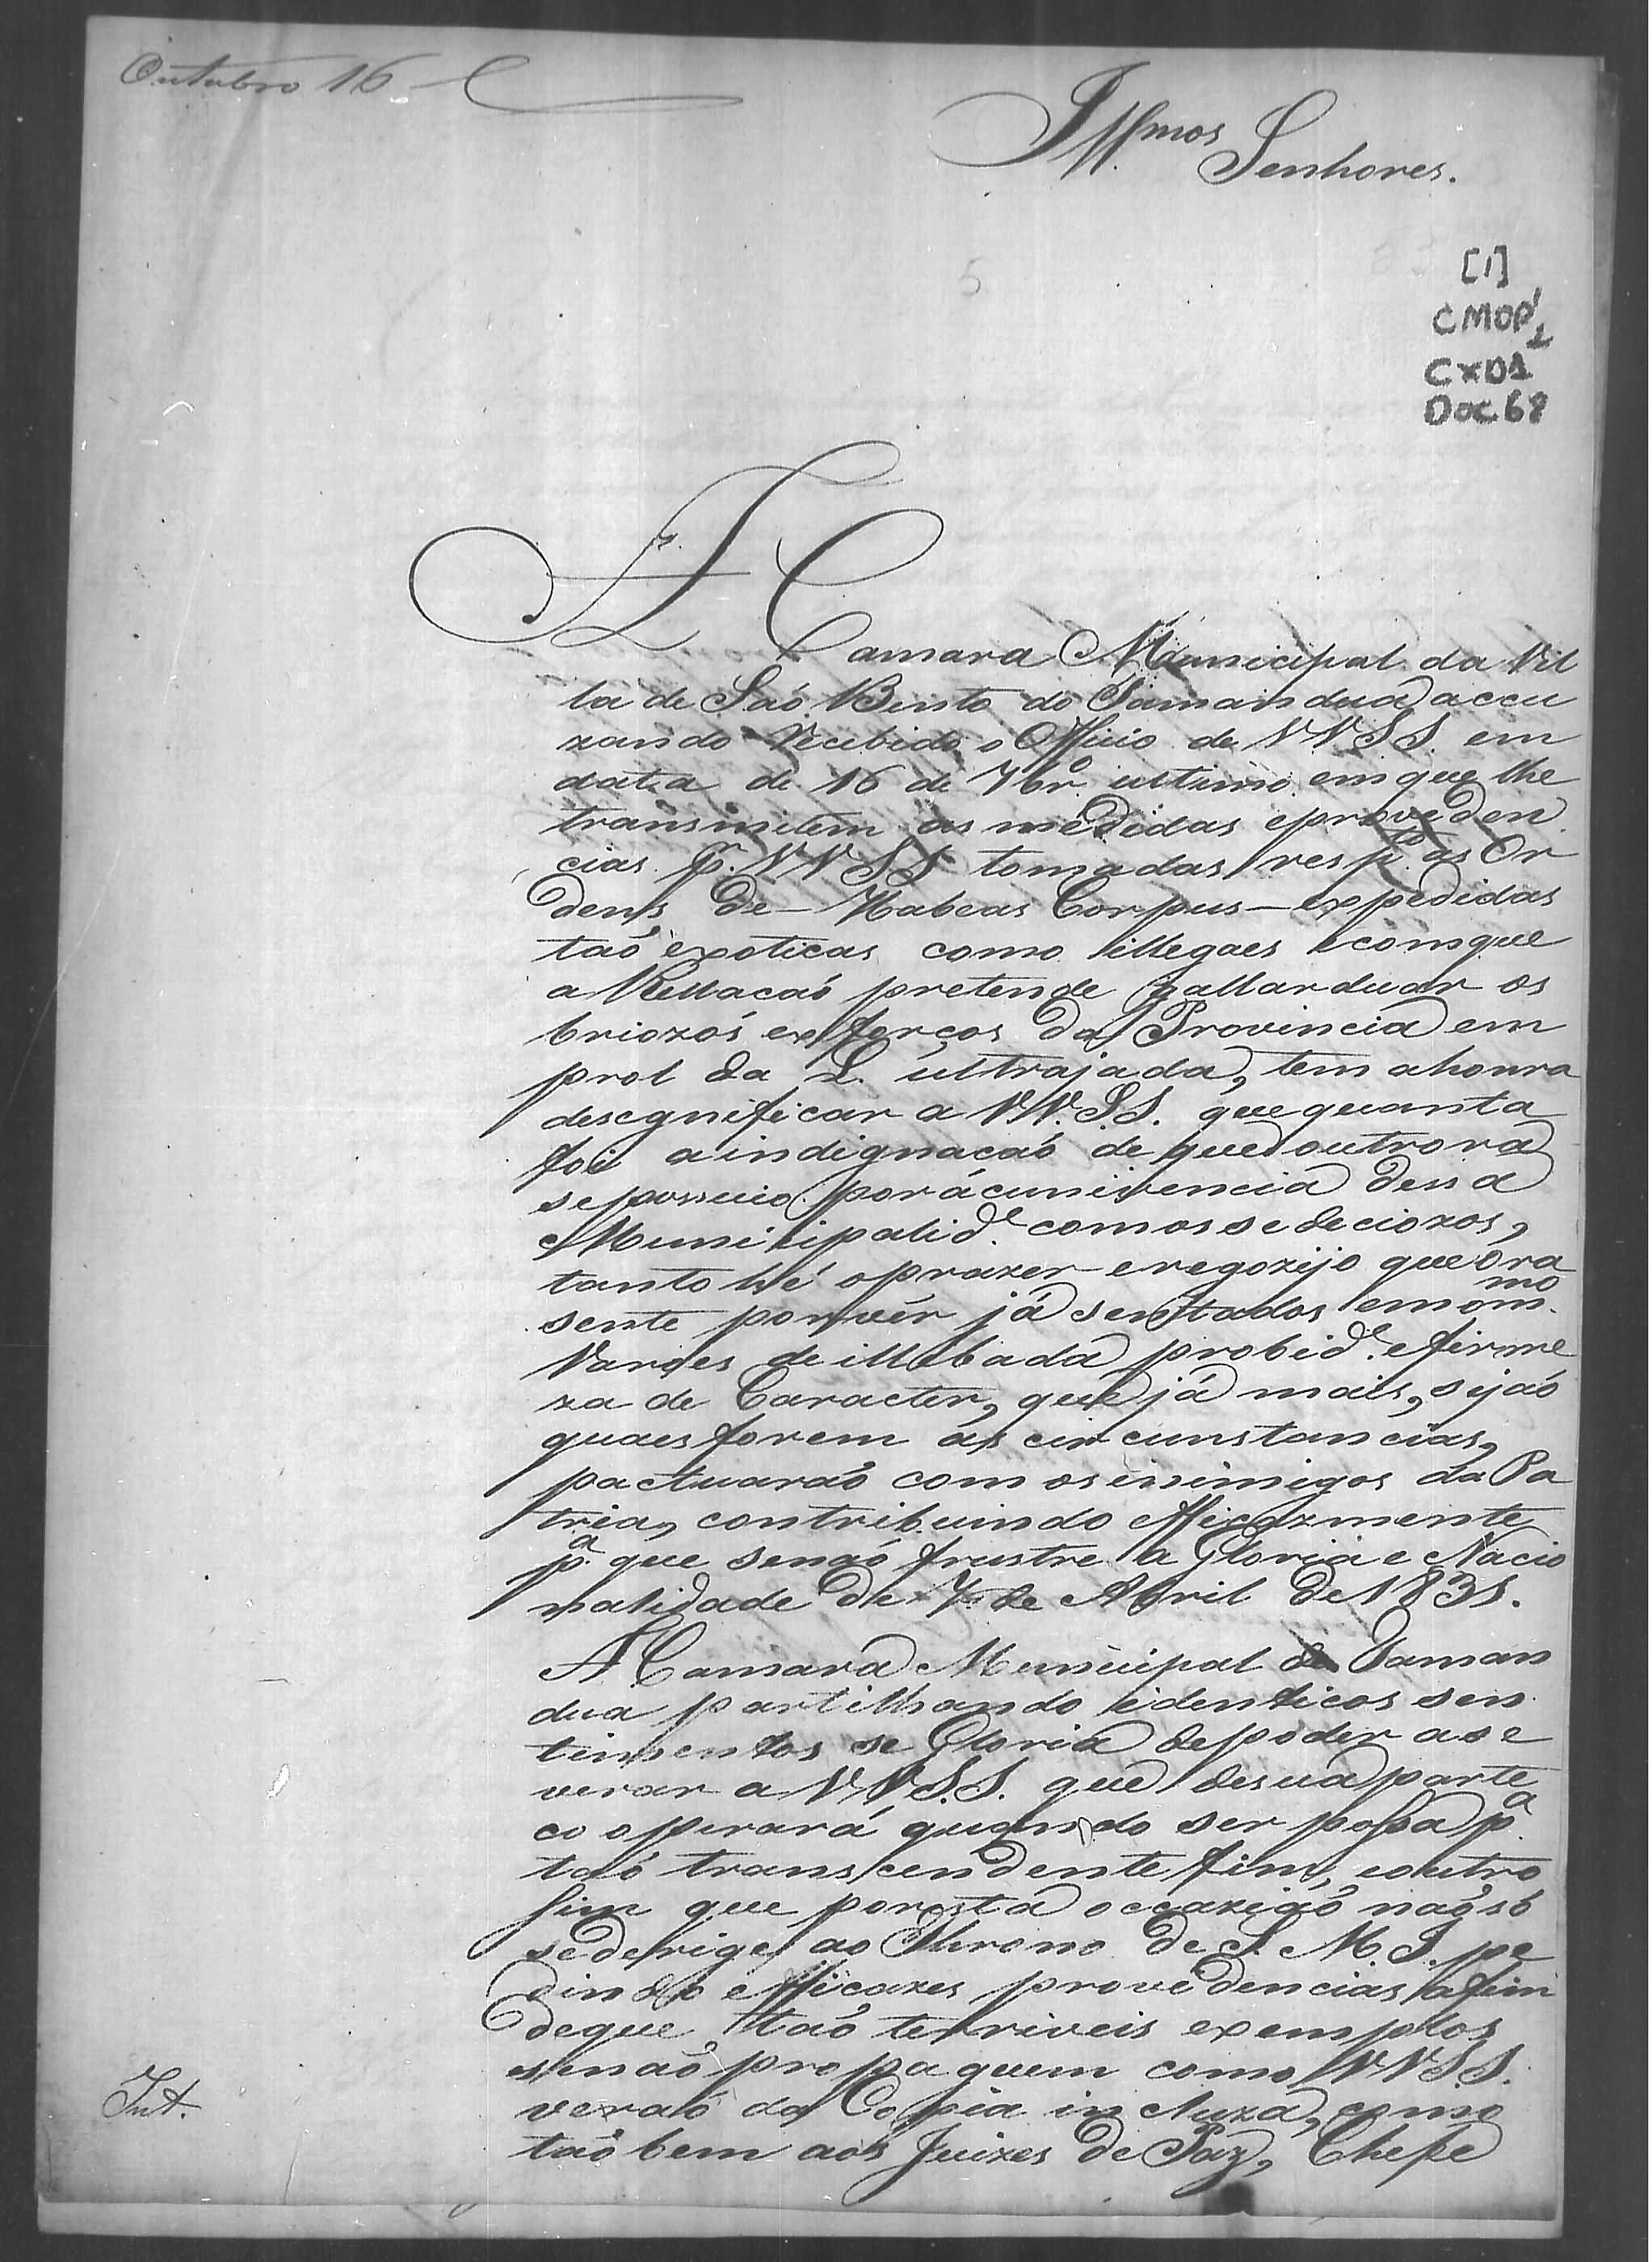 Outubro 16
Illmos
Senhores.
[1]
CMOP
Cx01
Doc 68
A Camara Municipal da Vil
la de Saó Bento do Tamandua accu
zando recebido o Officio de VVSS. em
data de 16 de 7bro ultimo em que lhe
transmitem as medidas e providen
cias pr. VVSS tomadas resp.to as Or
dens de - Habeas Corpus - expedidas
taó exoticas como illegaes e com que
a Rellacaó pretende gallarduar os
briozos exforços da Provincia em
prol da L. ultrajada, tem a honra
de segnificar a VV.S.S. que quanta
foi a indignacaó de que outrora
se possuio por a cunivencia dessa
Municipalid.e com os sedeciozos,
tanto hé o prazer e regozijo que ora
sente por vér já sentados em o m.mo
Varoes de illibada probid.e e firme
za de Caracter, que já mais, sejaó
quaes forem as circunstancias,
pactuaraó com os inimigos da Pa
tria, contribuindo efficazmente
p.a que senaó frustre a Gloria e Nacio
nalidade de 7 de Abril de 1831.
A Camara Municipal de Taman
dua partilhando identicos sen
timentos se Gloria de poder ase
verar a VVS.S. que de sua parte
co operará quando ser possa p.a
taó transcendente fim, e outro
sim que por esta occaziaó naó só
se derige ao Throno de S. M. I. pe
dindo efficazes providencias afim
de que taó terriveis exemplos
senaó propaguem como VVS.S.
veraó da Copia incluza, como
taó bem aos Juizes de Paz, Chefe
Int.